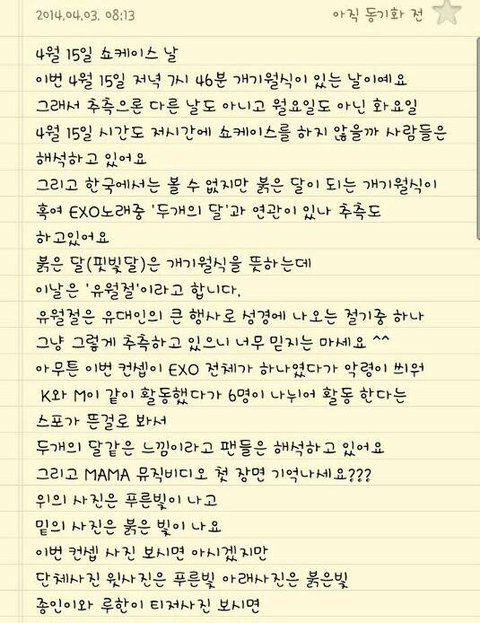 2014.04.03. 08:13 아직 동기화 전
4월 15일 쇼케이스 날
이번 4월 15일 저녁 7시 46분 개기월식이 있는 날이예요
그래서 추측으론 다른 날도 아니고 월요일도 아닌 화요일
4월 15일 시간도 저시간에 쇼케이스를 하지 않을까 사람들은
해석하고 있어요
그리고 한국에서는 볼 수 없지만 붉은 달이 되는 개기월식이
혹여 EXO노래중 '두개의 달'과 연관이 있나 추측도
하고있어요
붉은 달(핏빛달)은 개기월식을 뜻하는데
이날은 '유월절'이라고 합니다.
유월절은 유대인의 큰 행사로 성경에 나오는 절기중 하나
그냥 그렇게 추측하고 있으니 너무 믿지는 마세요 ^^
아무튼 이번 컨셉이 EXO 전체가 하나였다가 악령이 씌워
K와 M이 같이 활동했다가 6명이 나뉘어 활동 한다는
스포가 뜬걸로 봐서
두개의 달같은 느낌이라고 팬들은 해석하고 있어요
그리고 MAMA 뮤직비디오 첫 장면 기억나세요???
위의 사진은 푸른빛이 나고
밑의 사진은 붉은 빛이 나요
이번 컨셉 사진 보시면 아시겠지만
단체사진 윗사진은 푸른빛 아래사진은 붉은빛
종인이와 루한이 티저사진 보시면